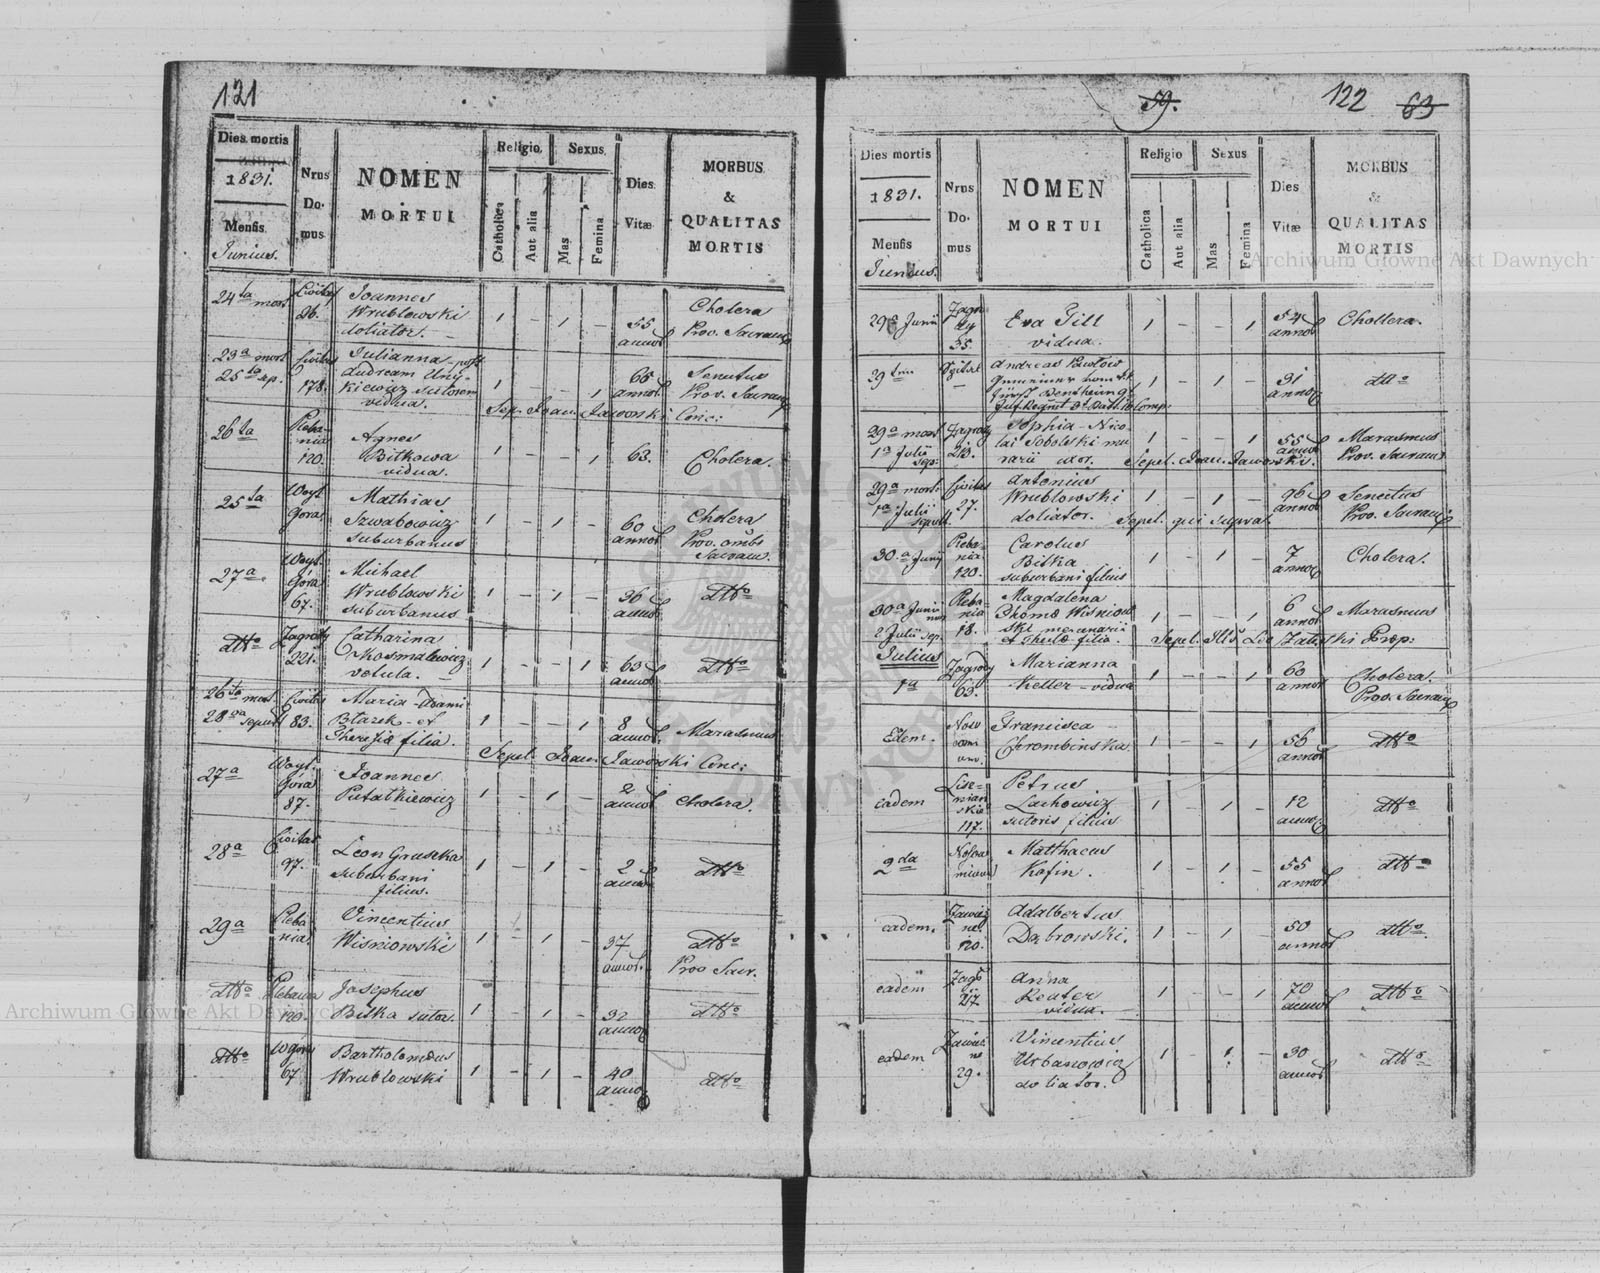 121
Dies mortis
1831.
Mensis
Junius.
Nrus
Do-
mus
NOMEN
MORTUI
Religio
Catholica
Aut alia
Sexus
Mas
Femina
Dies
Vitæ
MORBUS
&
QUALITAS
MORTIS
24ta mort
Civitas
26.
Joannes
Wrublowski
doliator. —
1 - 1 -
55
annos
Cholera
Prov. Sacram
23a mort
25ta sep.
Civitas
178.
Julianna post
Andream
sutorem
vidua.
1 - - 1
66
annos
Senectus
Prov. Sacram
Sep. Joan. Jaworski Conc:
26ta
Pleba-
nia
120.
Agnes
Bitkowa
vidua.
1 - - 1
63.
Cholera.
25ta
Woyt
Gora
Mathias
Szwabowicz
suburbanus
1 - 1 -
60
annos
Cholera
Prov. ombs
Sacram.
27a
Woyt.
Góra
67.
Michael
Wrublowski
suburbanus
1 - 1 -
36
annos
dtto
dtto
Zagrody
221.
Catharina
Kosmalewicz
vetula. —
1 - - 1
63
annos
dtto
26ta mort.
28va sepult
Civitas
83.
Maria Adami
Blazek et
Theresiæ filia.
1 - - 1
8
annos
Marasmus
Sepel. Joan. Jaworski Conc:
27a
Woyt.
Góra
87.
Joannes
Putatkiewicz
1 - 1 -
2
annos
Cholera.
28a
Civitas
97.
Leon Gruszka
suburbani
filius.
1 - 1 -
2
annos
dtto
29a
Pleba-
nia
Vincentius
Wisniowski
1 - 1 -
37
annos.
dtto
Prov Sacr.
dtto
Plebania
120.
Josephus
Bitka sutor.
1 - 1 -
32
annos
dtto
dtto
Wgóra
67
Bartholomæus
Wrublowski
1 - 1 -
40
annos
dtto
59.
122
63
Dies mortis
1831.
Mensis
Junius.
Nrus
Do-
mus
NOMEN
MORTUI
Religio
Catholica
Aut alia
Sexus
Mas
Femina
Dies
Vitæ
MORBUS
&
QUALITAS
MORTIS
29a Junii
Zagro
dy
35.
Eva Till
vidua.
1 - - 1
54
annos
Chollera.
29
Szpital
—
Andreas
Gemeiner vom
Fürst Bentheim
Inf. Regmt
1 - 1 -
31
annos
dtto
29a mort
1a Julii
sep:
Zagrody
213.
Sophia Nico
lai Sobolski mu
rarii uxor.
1 - - 1
55
annos
Marasmus
Prov. Sacram
Sepel. Joan. Jaworski.
29a mort.
1a Julii
sepult
Civitas
27.
Antonius
Wrublowski
doliator.
1 - 1 -
96
annos
Senectus
Prov. Sacram
Sepel. qui supra
30.a Junii
Pleba-
nia
120.
Carolus
Bitka
suburbani filius
1 - 1 -
7
annos
Cholera.
30a Junii
mort
2 Julii sep.
Pleba-
nia
18.
Magdalena
Thomæ Wisniow
ski mercenarii
et Theclæ filia.
1 - - 1
6
annos
Marasmus
Sepel. Zaleski Prop:
Julius
1a
Zagrody
63.
Marianna
Keller - vidua
1 - - 1
60
annos
Cholera.
Prov. Sacram
Edem.
Francisca
Chrombinska
1 - - 1
56
annos
dtto
eadem
117.
Petrus
Lachowicz
sutoris filius
1 - 1 -
12
annos
dtto
2da
Matthaeus
Kofin.
1 - 1 -
55
annos
dtto
eadem.
120.
Adalbertus
Dąbrowski.
1 - 1 -
50
annos
dtto.
eadem
217
Anna
Reuter
vidua.
1 - - 1
70
annos
dtto
eadem
29.
Vincentius
Urbanowicz
doliator.
1 - 1 -
30
annos
dtto
Archiwum Główne Akt Dawnych
Archiwum Główne Akt Dawnych